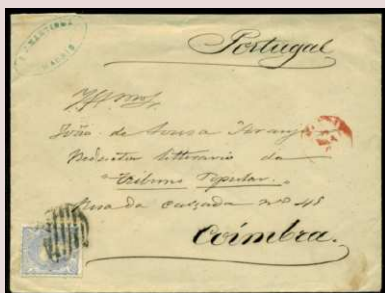 MADRID
Portugal
João de Sousa
Redactor litterario da
Tribuno Popular.
Rua da Calçada nº 48
Coimbra.